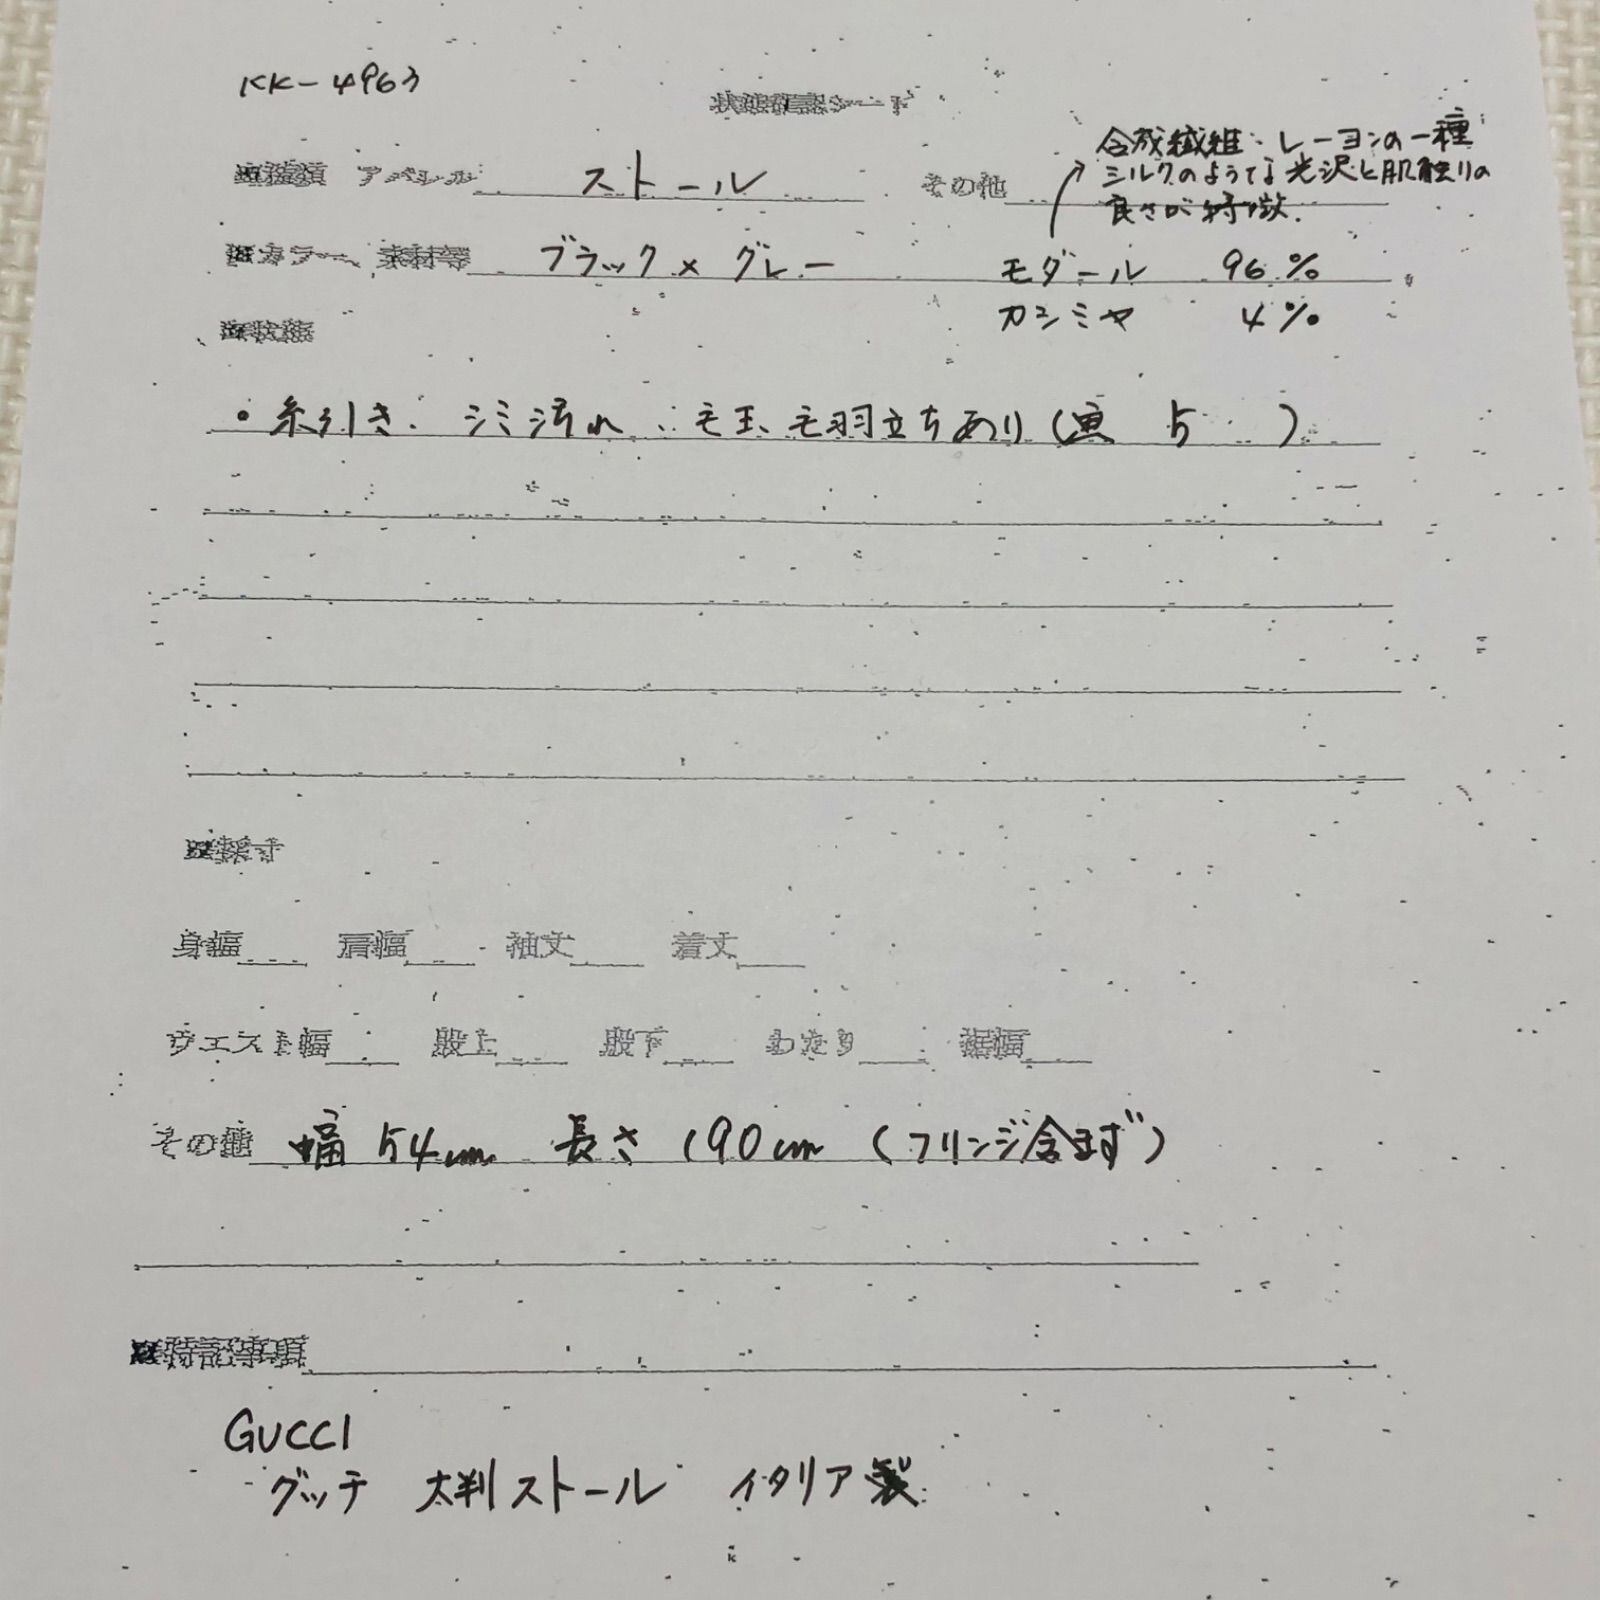 KK-4963
状態確認シート
合成繊維:レーヨンの一種
■種類 アパレル ストール その他 シルクのような光沢と肌触りの
良さが特徴.
■カラー、素材等 ブラック×グレー モダール 96%
■状態 カシミヤ 4%
・糸引き. シミ汚れ. 毛玉、毛羽立ちあり( 5 )
■採寸
身幅 肩幅 袖丈 着丈
ウエスト幅 股上 股下 わたり 裾幅
その他 幅54cm 長さ190cm (フリンジ含まず)
■特記事項
GUCCI
グッチ 大判ストール イタリア製